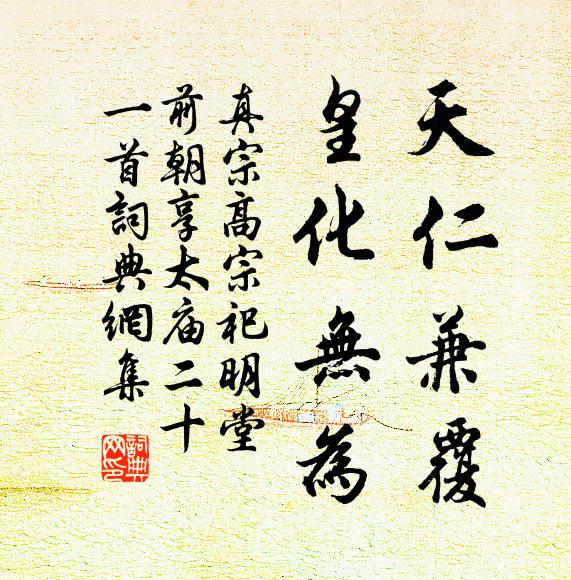 天仁兼覆
皇化無為
真宗高宗祀明堂
前朝享太庙二十
一首詞典網集
詞典
网印